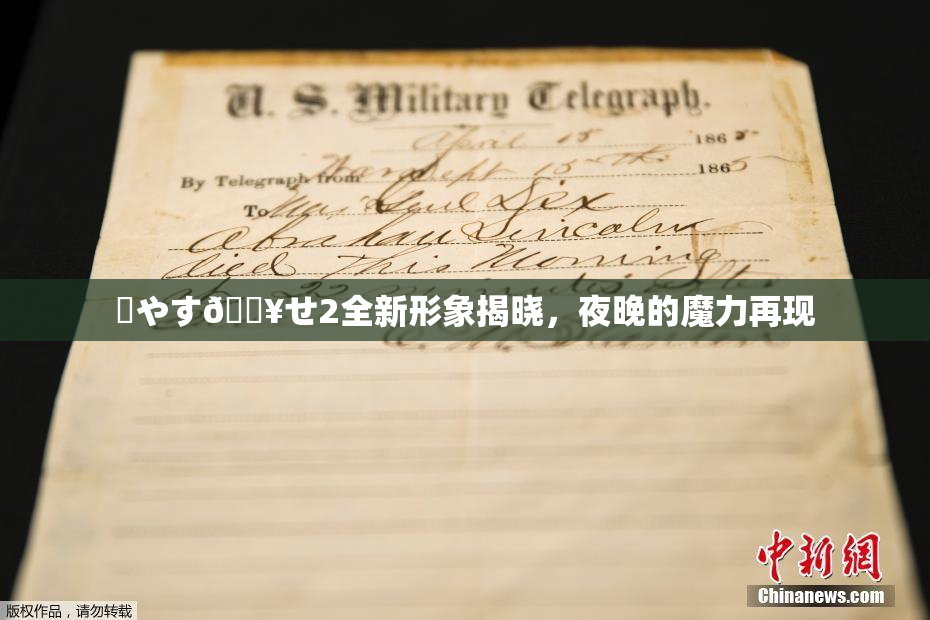 U. S. Military Telegraph.
April 15 1865
By Telegraph from War Dept 15th 1865
To Maj Genl Dix
Abraham Lincoln
died This Morning
at 22 minutes after
やすð¥せ2全新形象揭晓，夜晚的魔力再现
E M Stanton
中新網
Chinanews.com
版权作品，请勿转载